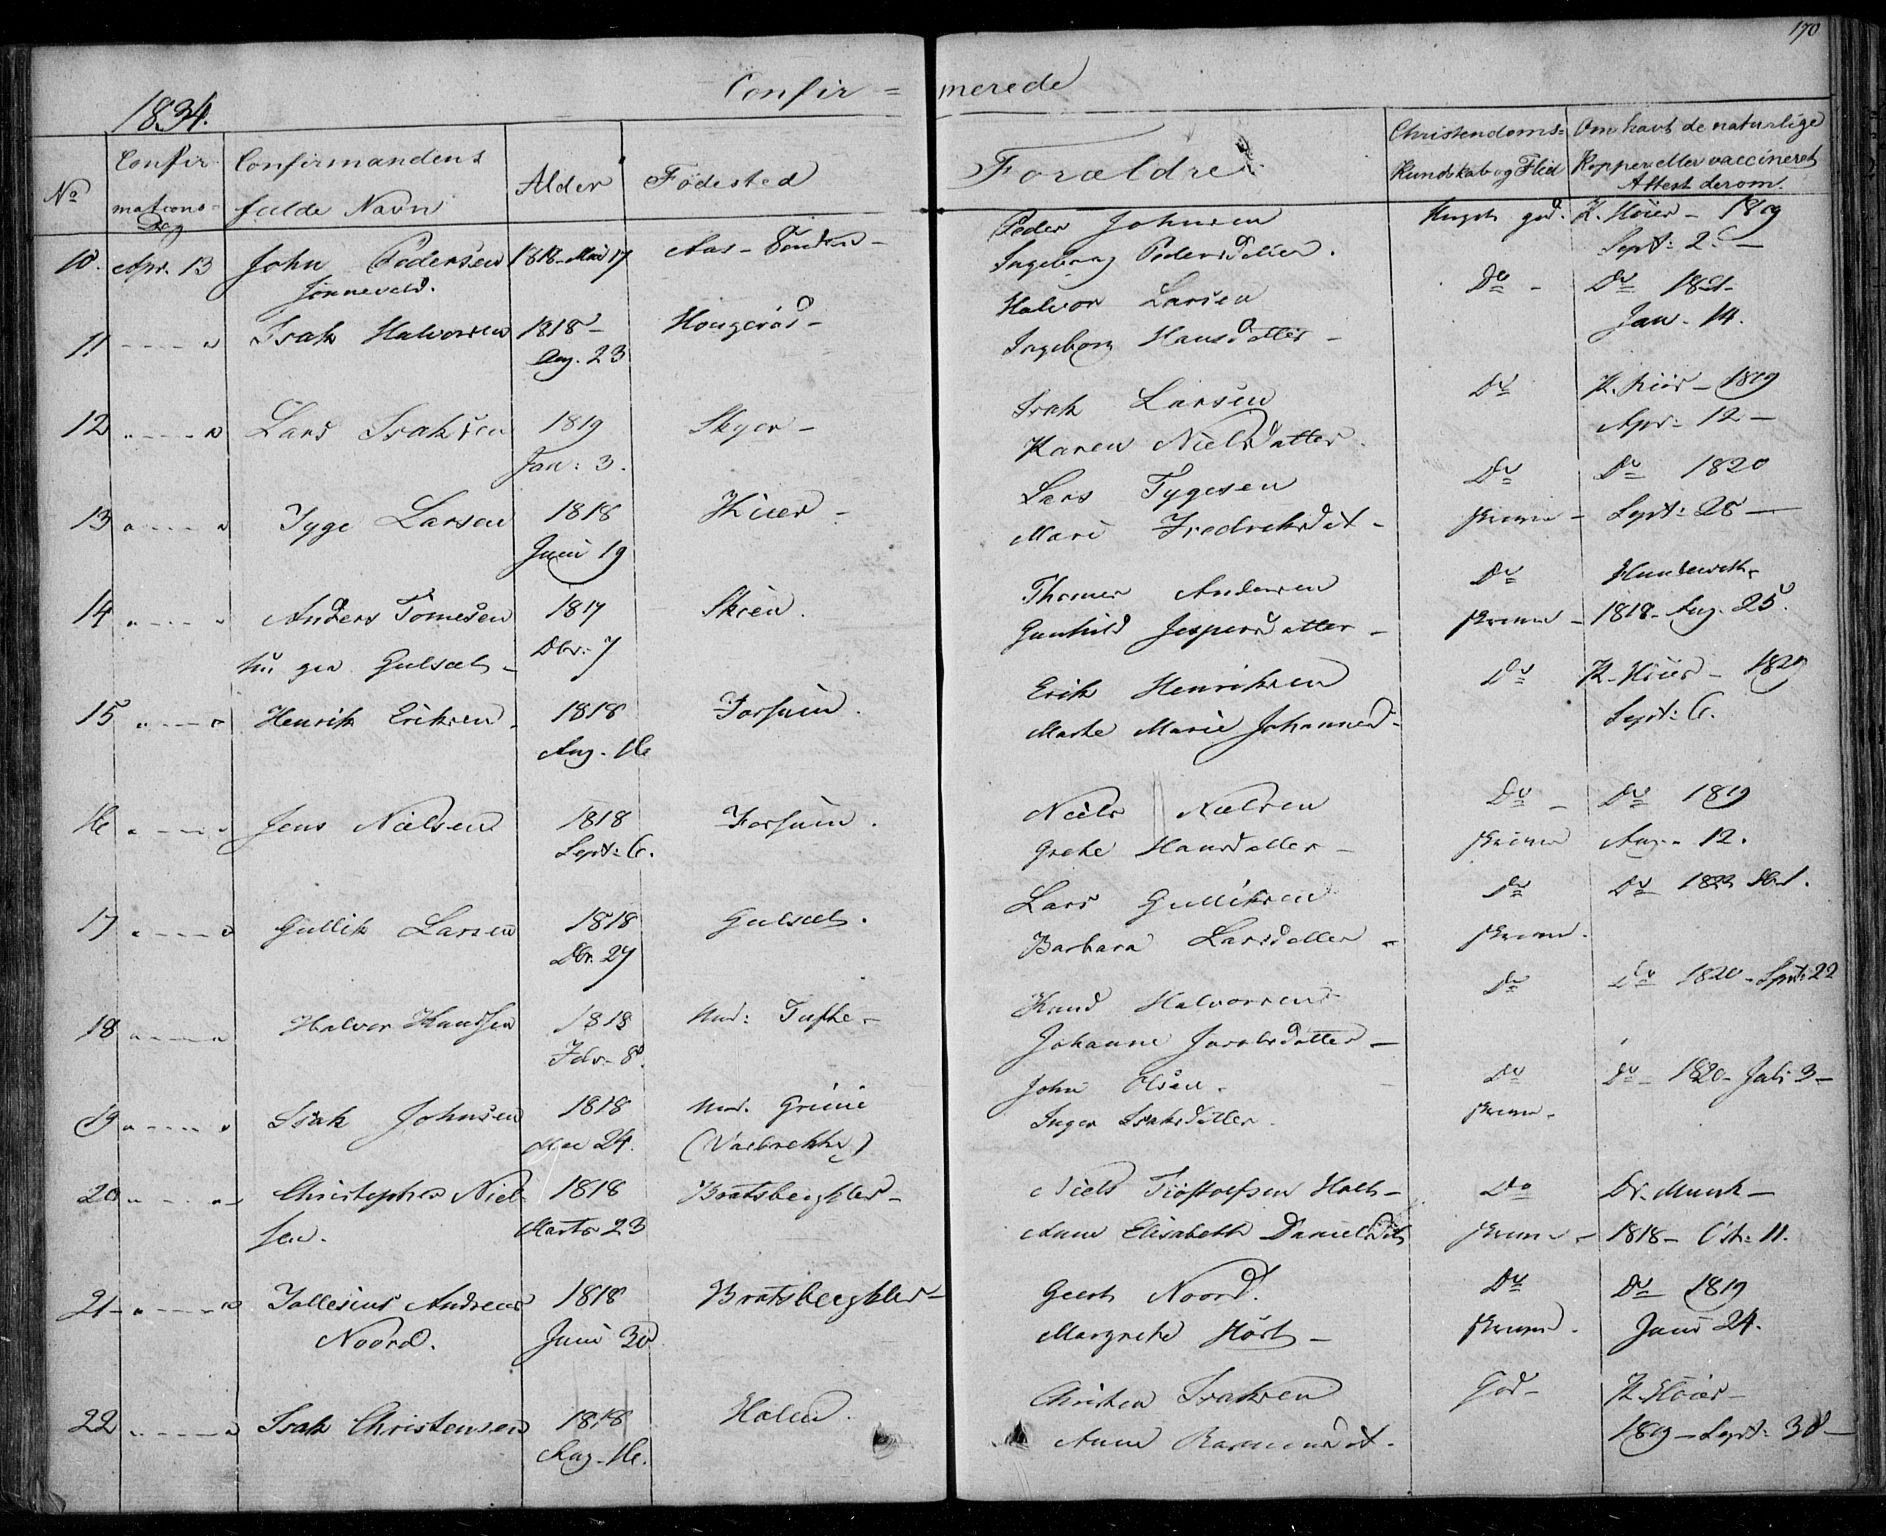 170
Confir = merede
1834.
No
Confir
mations=
Dag
Confirmandens
fulde Navn
Alder
Fødested
Forældre
Christendoms=
Kundskab og Flid
Om havt de naturlige
Kopper eller vaccineret
Attest derom.
10. Apr. 13 John Pedersen 1818 - Mai 17 Aas - Peder Johnsen Meget god. K. Höier - 1819
Jönneveld. Ingeborg Pedersdatter. Sept: 2
11 Isak Halvorsen 1818 - Hougerød - Halvor Larsen Do - Do 1821
Aug. 23 Ingeborg Hansdatter - Jan - 14.
12 Lars Isaksen 1819 Skyer - Isak Larsen Do K. Höier - 1819
Jan: 3. Karen Nielsdatter. Apr: 12 -
13 Tyge Larsen 1818 Kiær - Lars Tygesen Do Do 1820
Juni 19 Mari Fredriksdat - Sept: 28 -
14 Anders Tomesen 1817 Skien. Thomes Andersen Do
Gulset - Dbr. 7 Gunhild Jespersdatter - 1818 - Aug. 25.
15 Henrik Eriksen 1818 Fossum. Erik Henriksen Do K. Höier - 1829
Aug. 16 Marte Marie Johannesd - Sept: 6.
16 Jens Nielsen 1818 Fossum. Niels Nielsen Do - Do 1819
Sept: 6. Grethe Hansdatter - Aug. 12.
17 Gullik Larsen 1818 Gulset. Lars Gulliksen Do Do 1822
Dbr. 27 Barbara Larsdatter -
18 Halvor Knudsen 1818 Tufte - Knud Halvorsen Do Do 1820 - Sept: 22
Fbr. 8. Johanne Jacobsdatter -
19 Isak Johnsen 1818 Grinie John Olsen - Do Do 1820 - Juli 3 -
Mai 24. (Vaebrekke) Inger Isaksdatter.
20 Christopher Niel- 1818 Bratsbergkler - Niels Tjostolfsen Holt - Do Dr. Munk -
sen. Marts 23 Anne Elisabeth Danielsdt 1818 - Oct: 11.
21 Jallesius Andreas 1818 Bratsbergkler - Geert Noord. Do Do 1819
Noord. Juni 30 Margrethe Hört - Juni 24.
22 Isak Christensen 1818 Holen. Christen Isaksen God - K. Höier -
Aug. 16. Anne Rasmusdat. 1819 - Sept: 30 -